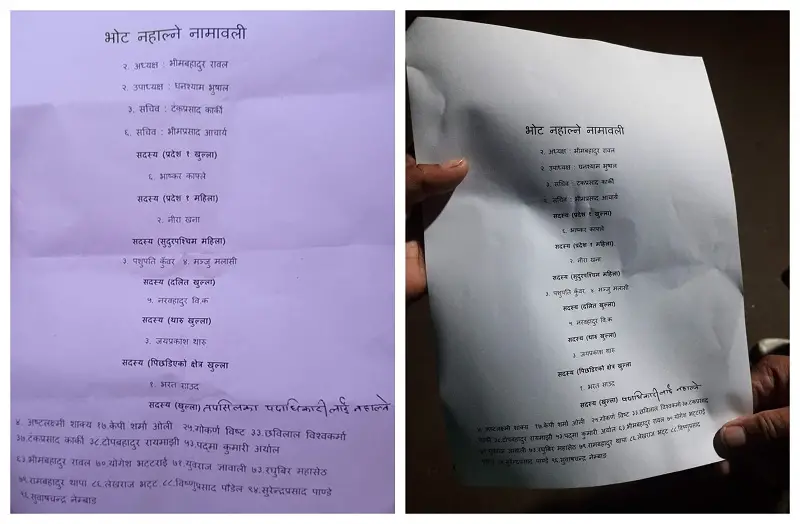 भोट नहाल्ने नामावली
२. अध्यक्ष : भीमबहादुर रावल
२. उपाध्यक्ष : घनश्याम भुषाल
३. सचिव : टंकप्रसाद कार्की
६. सचिव : भीमप्रसाद आचार्य
सदस्य (प्रदेश १ खुल्ला)
६. भाष्कर काफ्ले
सदस्य (प्रदेश १ महिला)
२. नीरा खना
सदस्य (सुदुरपश्चिम महिला)
३ पशुपति कुँवर ४. मञ्जु मलासी
सदस्य (दलित खुल्ला)
५. नरवहादुर वि.क
सदस्य (थारु खुल्ला)
३. जयप्रकाश थारु
सदस्य (पिछडिएको क्षेत्र खुल्ला
१. भरत साउद
सदस्य (खुल्ला) तपसिलका पदाधिकारी लाई नहाल्ने
४. अष्टलक्ष्मी शाक्य १७.केपी शर्मा ओली २५.गोकर्ण विष्ट ३३.छविलाल विश्वकर्मा
३७.टंकप्रसाद कार्की ३८.टोपबहादुर रायमाझी ५३.पद्मा कुमारी अर्याल
६३.भीमबहादुर रावल ७०.योगेश भट्टराई ७१.युवराज ज्ञवाली ७३.रघुबिर महासेठ
७९.रामबहादुर थापा ८६.लेखराज भट्ट ८८.विष्णुप्रसाद पौडेल ९४.सुरेन्द्रप्रसाद पाण्डे
९६.सुवाषचन्द्र नेम्वाङ
भोट नहाल्ने नामावली
२. अध्यक्ष : भीमबहादुर रावल
२. उपाध्यक्ष : घनश्याम भुषाल
३. सचिव : टंकप्रसाद कार्की
६. सचिव : भीमप्रसाद आचार्य
सदस्य (प्रदेश १ खुल्ला)
६. भाष्कर काफ्ले
सदस्य (प्रदेश १ महिला)
२. नीरा खना
सदस्य (सुदुरपश्चिम महिला)
३. पशुपति कुँवर ४. मञ्जु मलासी
सदस्य (दलित खुल्ला)
५. नरवहादुर वि.क
सदस्य (थारु खुल्ला)
३. जयप्रकाश थारु
सदस्य (पिछडिएको क्षेत्र खुल्ला
१. भरत साउद
सदस्य (खुल्ला) पदाधिकारी लाई नहाल्ने
४. अष्टलक्ष्मी शाक्य १७.केपी शर्मा ओली २५.गोकर्ण विष्ट ३३.छविलाल विश्वकर्मा ३७.टंकप्रसाद
कार्की ३८.टोपबहादुर रायमाझी ५३.पद्मा कुमारी अर्याल ६३.भीमबहादुर रावल ७०.योगेश भट्टराई
७१.युवराज ज्ञवाली ७३.रघुबिर महासेठ ७९.रामबहादुर थापा ८६.लेखराज भट्ट ८८.विष्णुप्रसाद
९४.सुरेन्द्रप्रसाद पाण्डे ९६.सुवाषचन्द्र नेम्वाङ